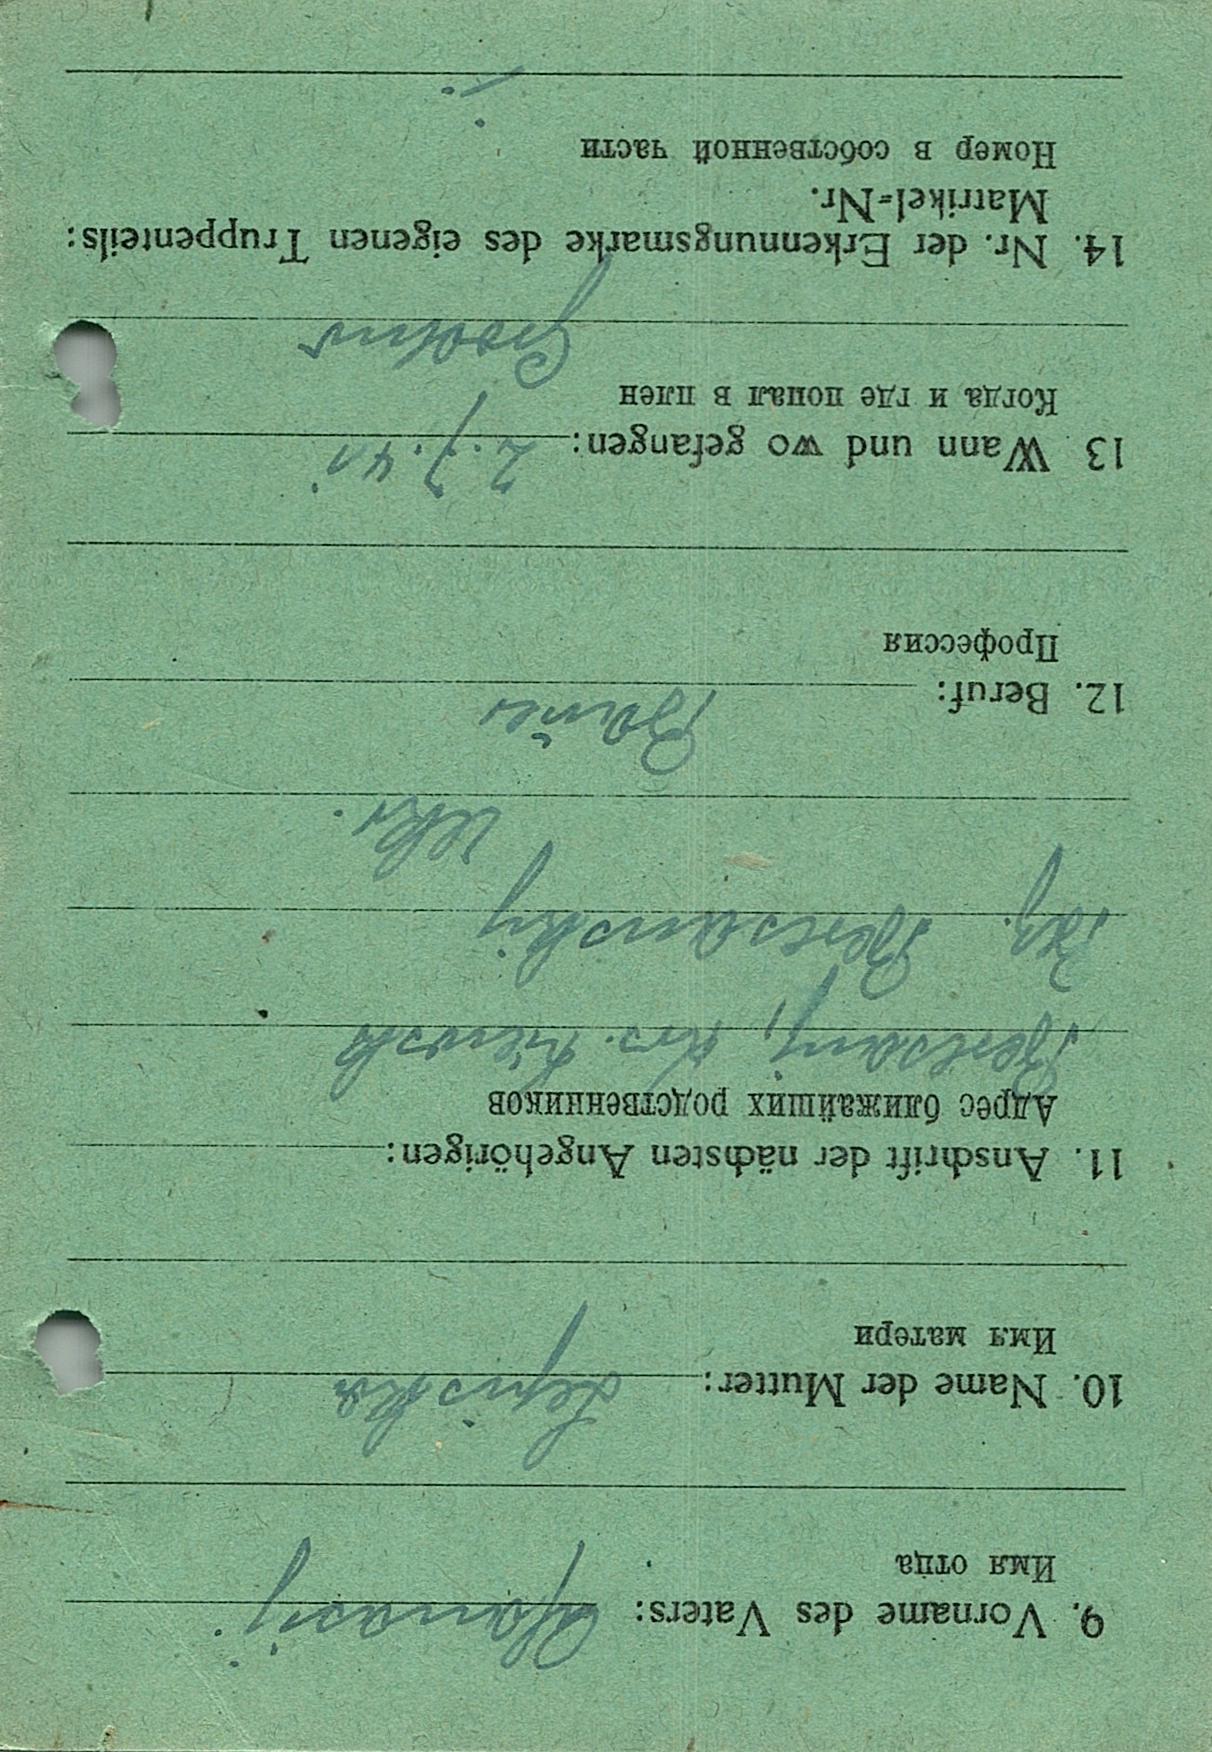 9. Vorname des Vaters: Afanasij
Имя отца
10. Name der Mutter:
Имя матери
11. Anschrift der nächsten Angehörigen:
Адрес ближайших родственников
12. Beruf: Bauer
Профессия
13 Wann und wo gefangen: 2.7.41
Когда и где попал в плен
Grodno
14. Nr. der Erkennungsmarke des eigenen Truppenteils:
Matrikel=Nr.
Номер в собственной части